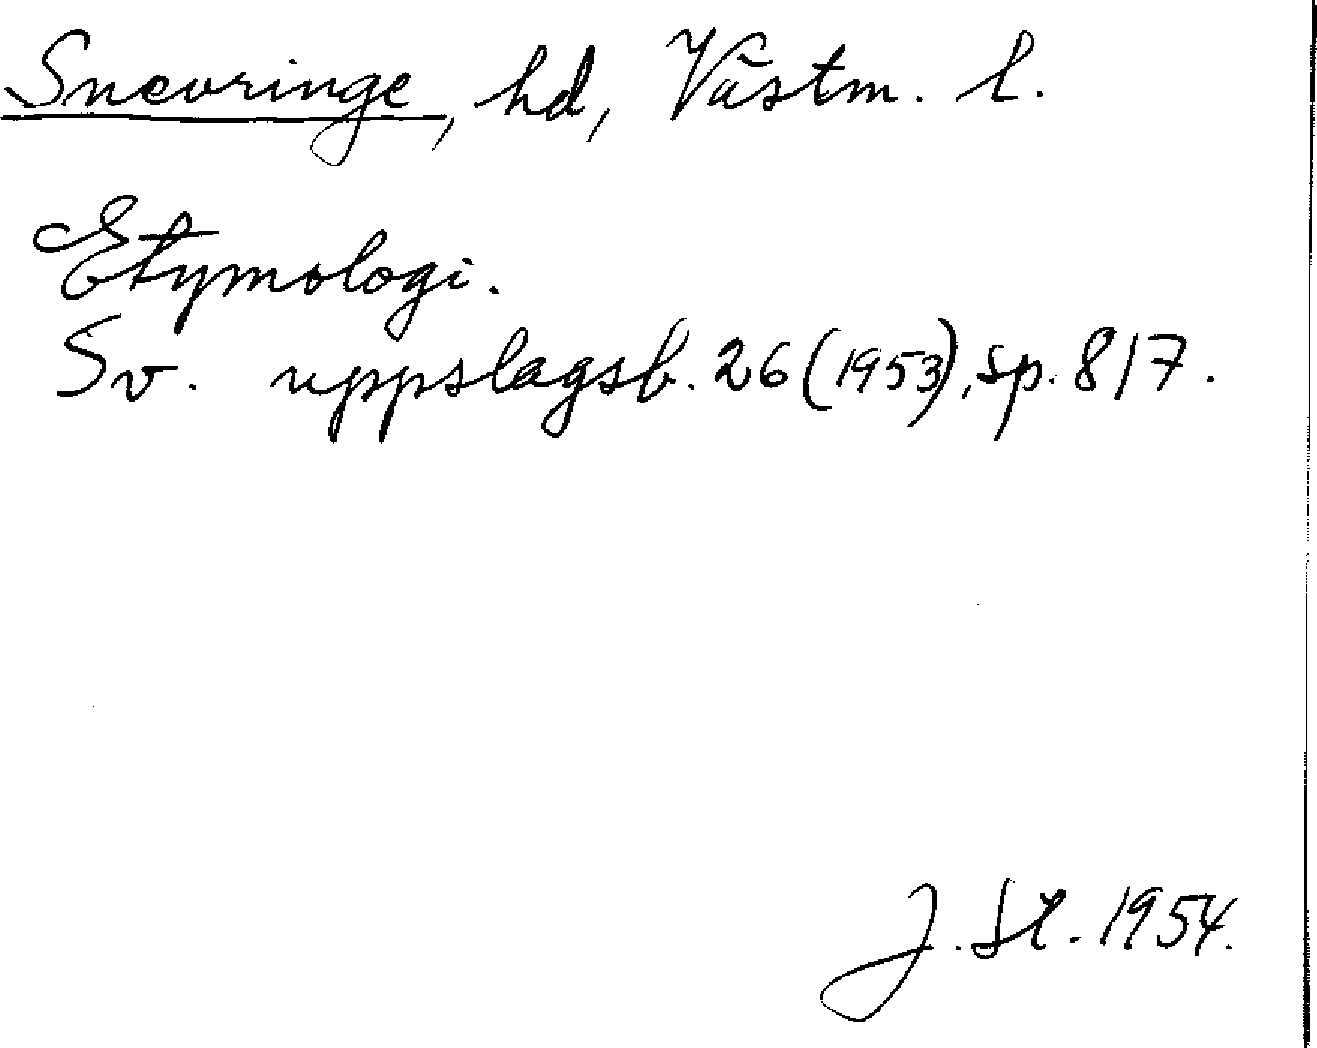 Snevringe, hd, Västm. l.
Etymologi.
Sv. uppslagsb. 26 (1953), sp. 817.
J. St. 1954.